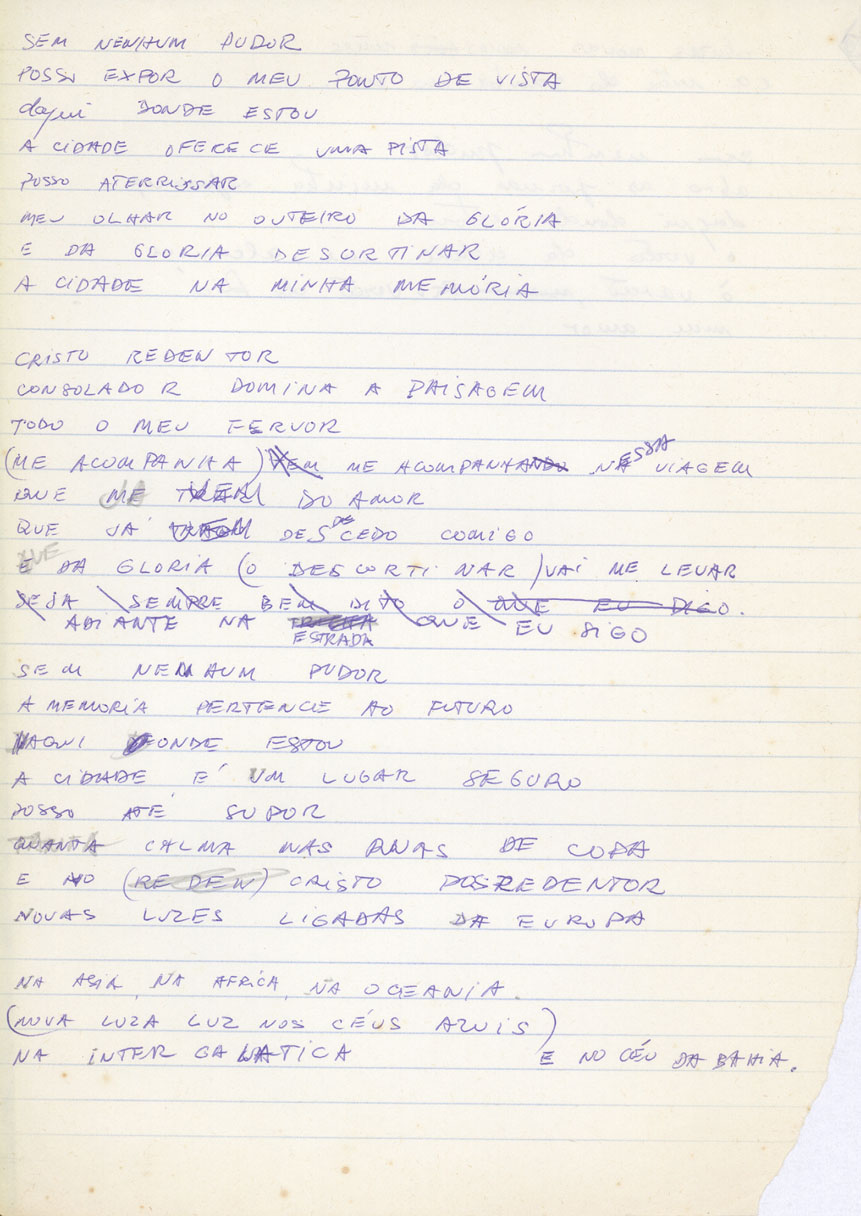 SEM NENHUM PUDOR
POSSO EXPOR O MEU PONTO DE VISTA
daqui DONDE ESTOU
A CIDADE OFERECE UMA PISTA
POSSO ATERRISSAR
MEU OLHAR NO OUTEIRO DA GLÓRIA
E DA GLORIA DESCORTINAR
A CIDADE NA MINHA MEMÓRIA
CRISTO REDENTOR
CONSOLADOR DOMINA A PAISAGEM
TODO O MEU FERVOR
(ME ACOMPANHA) VEM ME ACOMPANHANDO NESSA VIAGEM
QUE JÁ VEM DO AMOR
QUE JÁ DESDE CEDO COMIGO
QUE DA GLORIA (O DESCORTINAR) VAI ME LEVAR
SEJA SEMPRE BEM DITO O QUE EU DIGO.
ADIANTE NA ESTRADA QUE EU SIGO
SEM NENHUM PUDOR
A MEMORIA PERTENCE AO FUTURO
AQUI ONDE ESTOU
A CIDADE É UM LUGAR SEGURO
POSSO ATÉ SUPOR
CALMA NAS RUAS DE COPA
E NO (REDEN) CRISTO REDENTOR
NOVAS LUZES LIGADAS DA EUROPA
NA ASIA, NA AFRICA, NA OCEANIA.
(NOVA LUZA LUZ NOS CÉUS AZUIS)
NA INTER GALATICA E NO CÉU DA BAHIA.